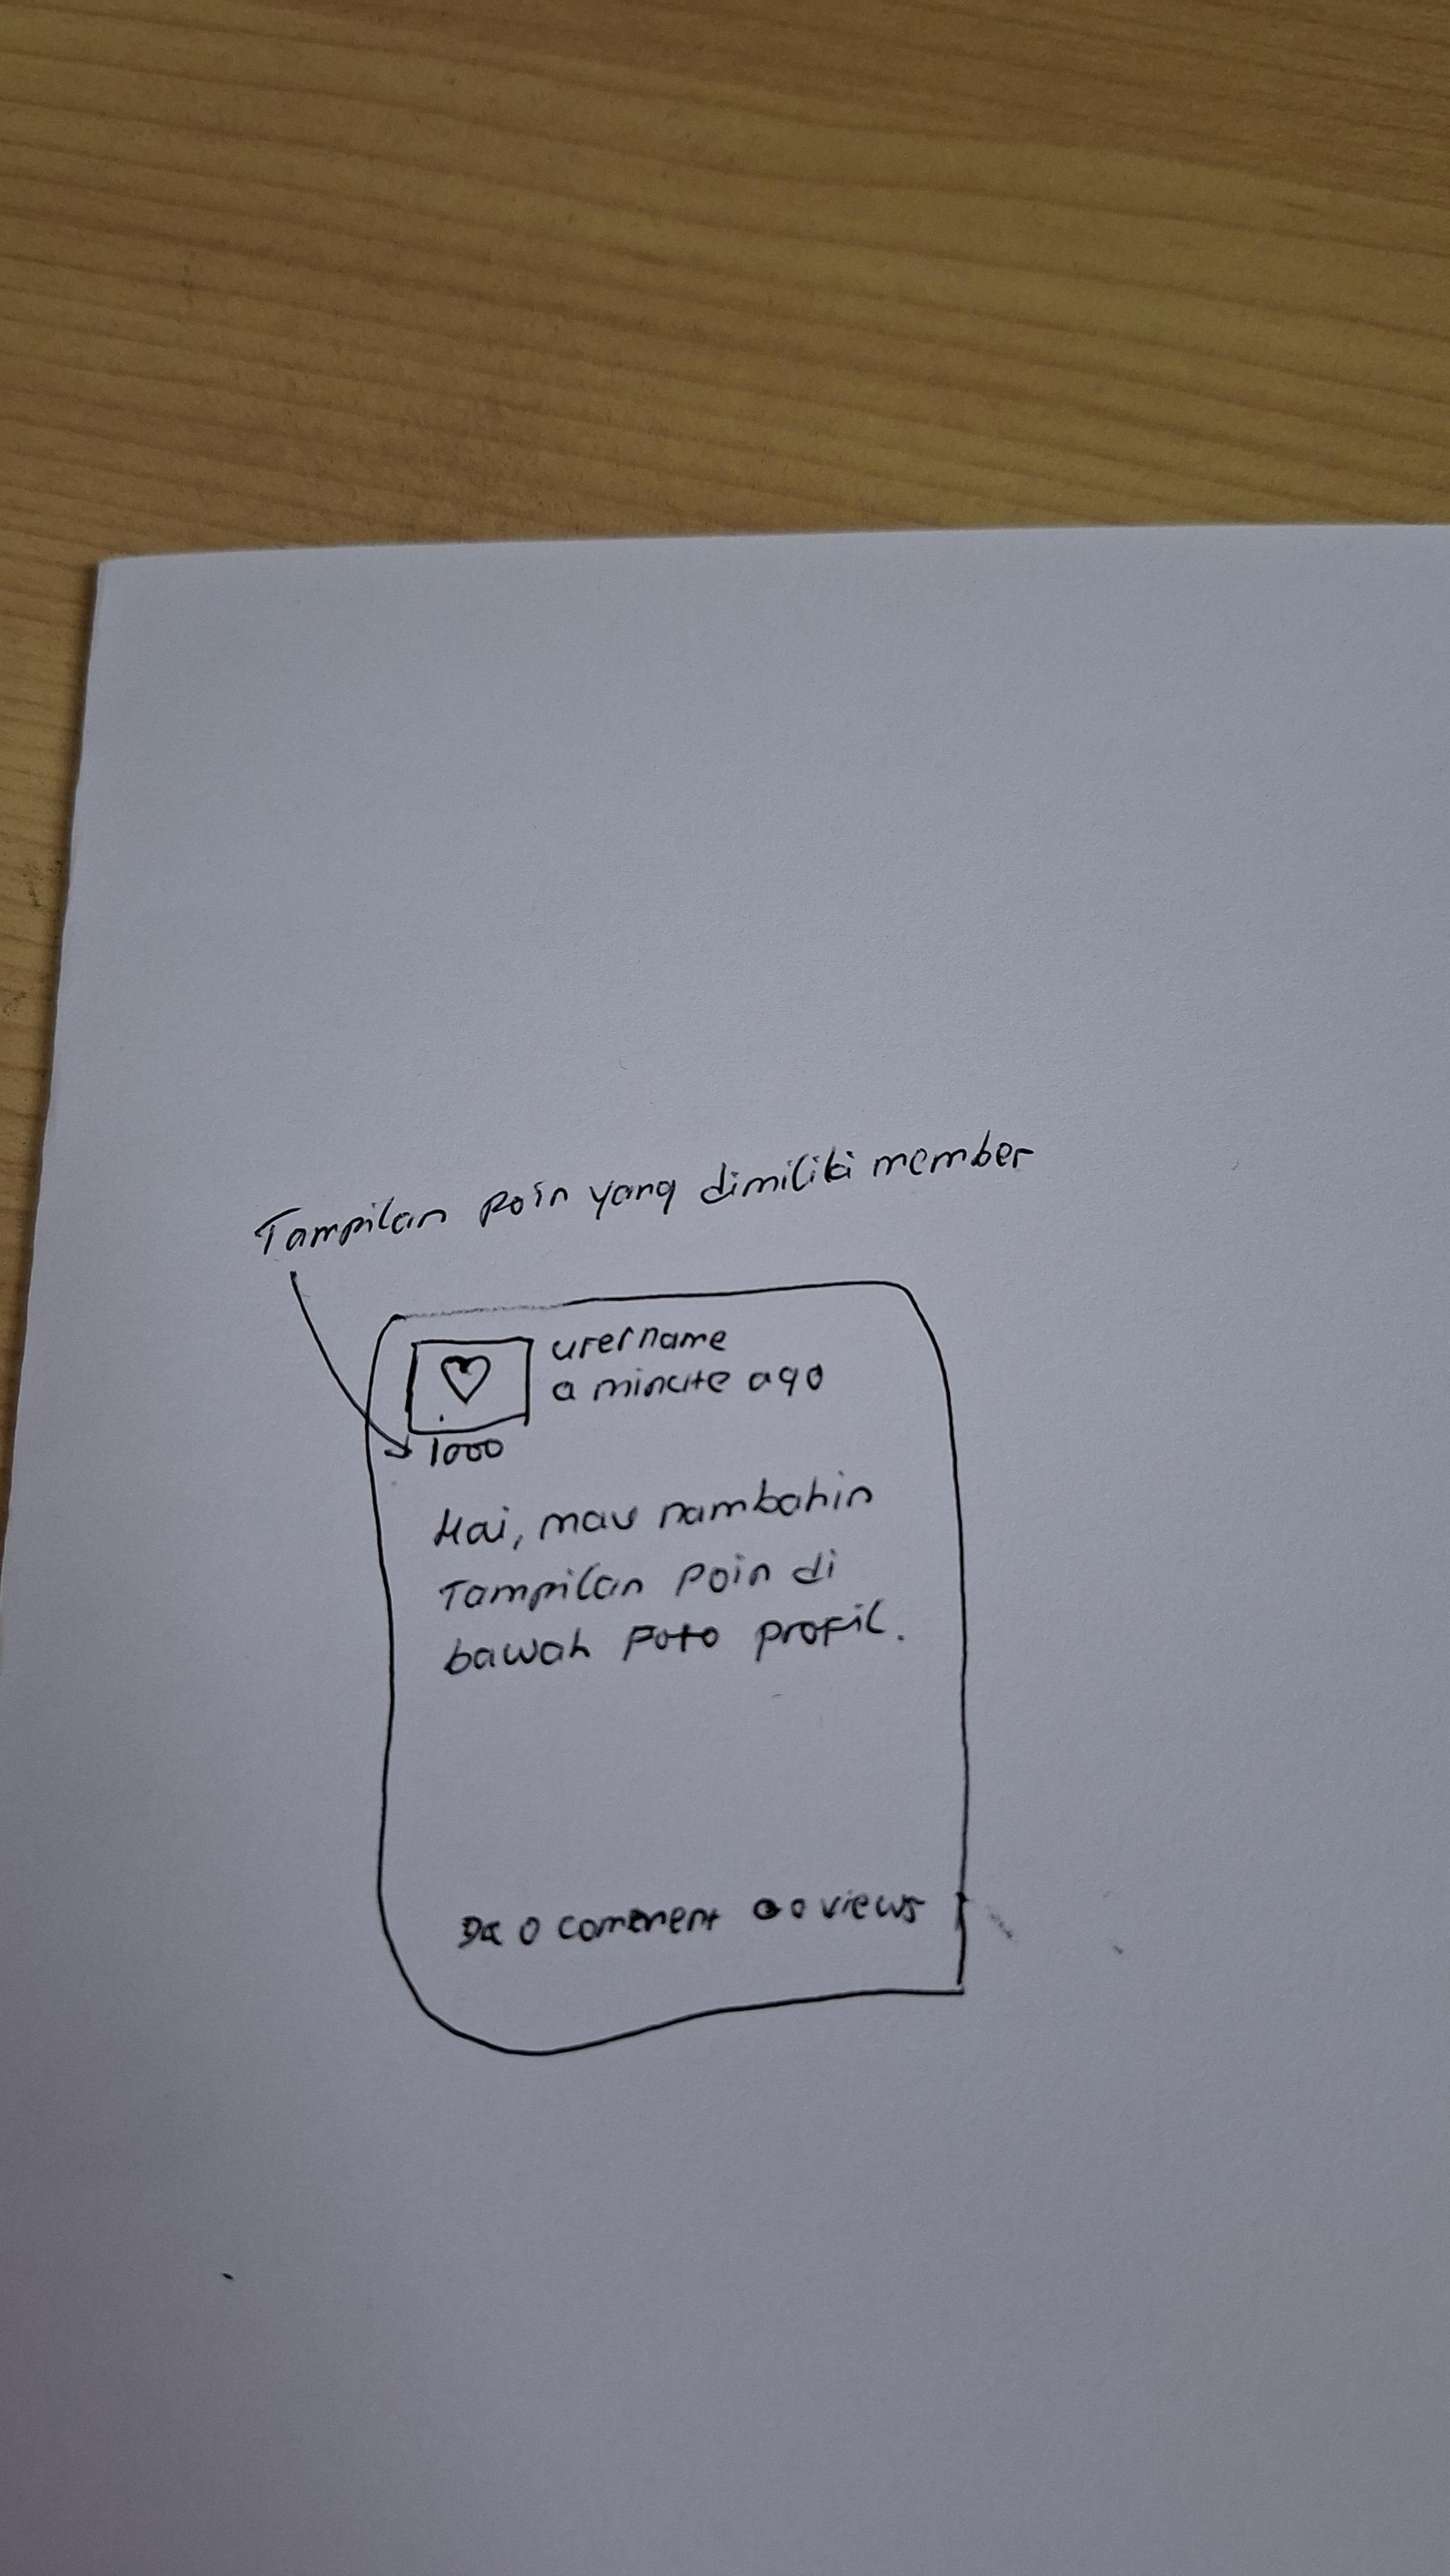 Tampilan poin yang dimiliki member
username
a minute ago
1000
Hai, mau nambahin
Tampilan Poin di
bawah Foto profil.
0 comment 0 views